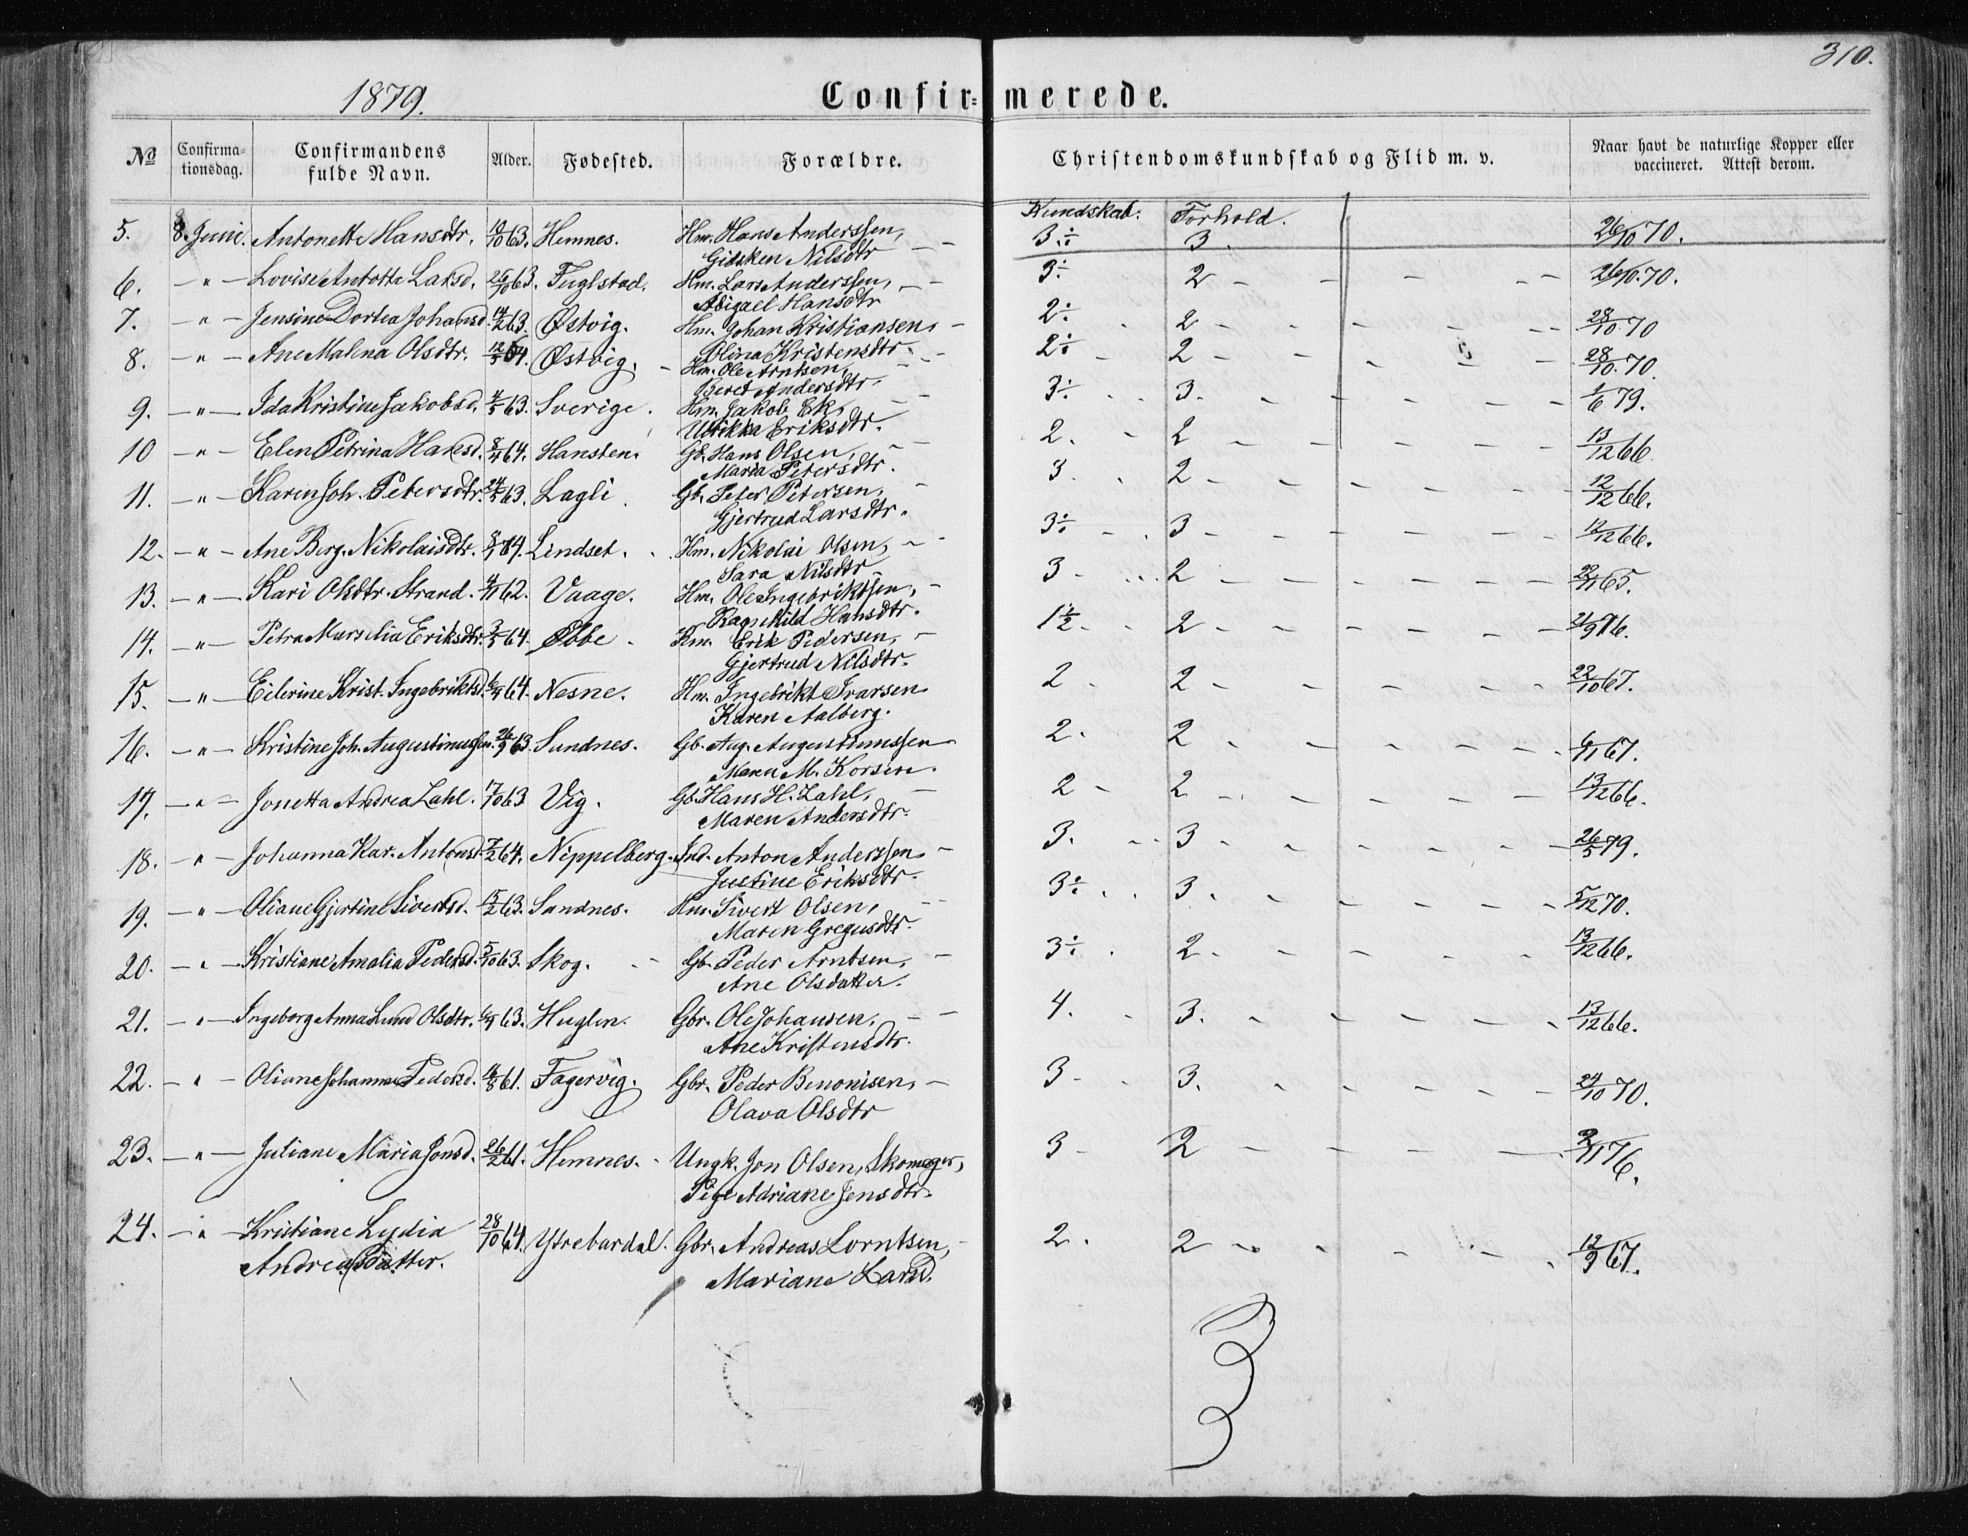 310.
1879.
Confir= merede.
No Confirma-tionsdag. Confirmandens fulde Navn. Alder. Fødested. Forældre. Christendomskundskab og Flid m. v. Naar havt de naturlige Kopper eller vaccineret. Attest derom.
Kundskab. Forhold.
5. 8. Juni. Antonette Hansdtr. 63. Hemnes. Hm. Hans Anderssen, 3÷ 3. 26/10 70.
Gidsken Nilsdtr
6. — " — Lovise Larsd. 63. Fuglstad. Hm. Lars Anderssen, 3÷ 2 26/10.70.
Abigael Hansdtr
7. " — Jensine Dortea Johansd. 63. Østvig. Hm. Johan Kristiansen, 2÷ 2 28/10 70
Olina Kristensdtr.
8. " — Ane Malena Olsdtr. 64. Østvig. Hm. Ole Arntsen, 2÷ 2 28/10.70.
Beret Andersdtr.
9. — " — Ida Kristine Jakobsd. 63. Sverige. Hm. Jakob Ek, 3÷ 3. 1/6 79.
Ulrikka Eriksdtr.
10 — " — Elen Petrina Hansd. 8/4 64. Hansten. Gb. Hans Olsen, 2. 2 13/12 66.
Maria Petersdtr.
11. — " — Karen Joh. Petersdtr. 63. Lagli. Gb. Peter Petersen, 3 2 12/12 66.
Gjertrud Larsdtr.
12. — " — Ane Berg. Nikolaisdtr. 64. Lindset. Hm. Nikolai Olsen, 3÷ 3 12/12 66.
Sara Nilsdtr
13. — " — Kari Olsdtr. Strand. 62. Vaage. Hm. Ole Ingebriktsen, 3 2 65.
Ragnhild Hansdtr.
14. — " — Petra Marselia Eriksdtr. 3/5 64. Øbbe. Hm. Erik Pedersen, 1½ 2 76.
Gjertrud Nilsdtr.
15. — " — Eilerine Krist. Ingebriktsd. 64. Nesne. Hm. Ingebrikt Ivarsen 2 2 22/10 67.
Karen Aalberg.
16. — " — Kristine Joh. Augustinussen. 26/9 63. Sundnes. Gb. Aug. Augustinussen 2. 2 6/11 67.
Maren M. Korsen.
17. — " — Jonetta Andrea Zahl. 7/10 63 Vig. Gb. Hans H. Zahl, 2 2 13/12 66.
Maren Andersdtr.
18. — " — Johanna Kar. Antonsd. 7/2 64. Nippelberg. Ind. Anton Anderssen 3. 3 26/5 79.
Justine Eriksdtr.
19. — " — Oliane Gjertine Sivertsd. 15/2 63. Sandnes. Hm. Sivert Olsen, 3÷ 3. 5/12 70.
Maren Gregusdtr.
20. — " — Kristiane Amalia Pedersd. 5/10 63. Skog. Gb. Peder Arntsen, 3÷ 2 13/12 66.
Ane Olsdatter.
21. — " — Ingeborg Anna Lund Olsdtr. 6/9 63. Huglen. Gbr. Ole Johansen, 4. 3. 13/12 66.
Ane Kristensdtr.
22. — " — Oliane Johanna Pedersd. 61. Fagervig. Gbr. Peder Benonisen, 3 3. 24/10 70.
Olava Olsdtr
23. — " — Juliane Maria Jonsd. 26/2 61. Hemnes. Ungk. Jon Olsen, Skomager, 3 2 2/11 76.
Pige Adriane Jensdtr.
24. — " — Kristiane Lydia 28/10 64. Ytrebardal. Gbr. Andreas Lorntsen, 2. 2 12/9 67.
Andreasdatter. Mariane Larsd.